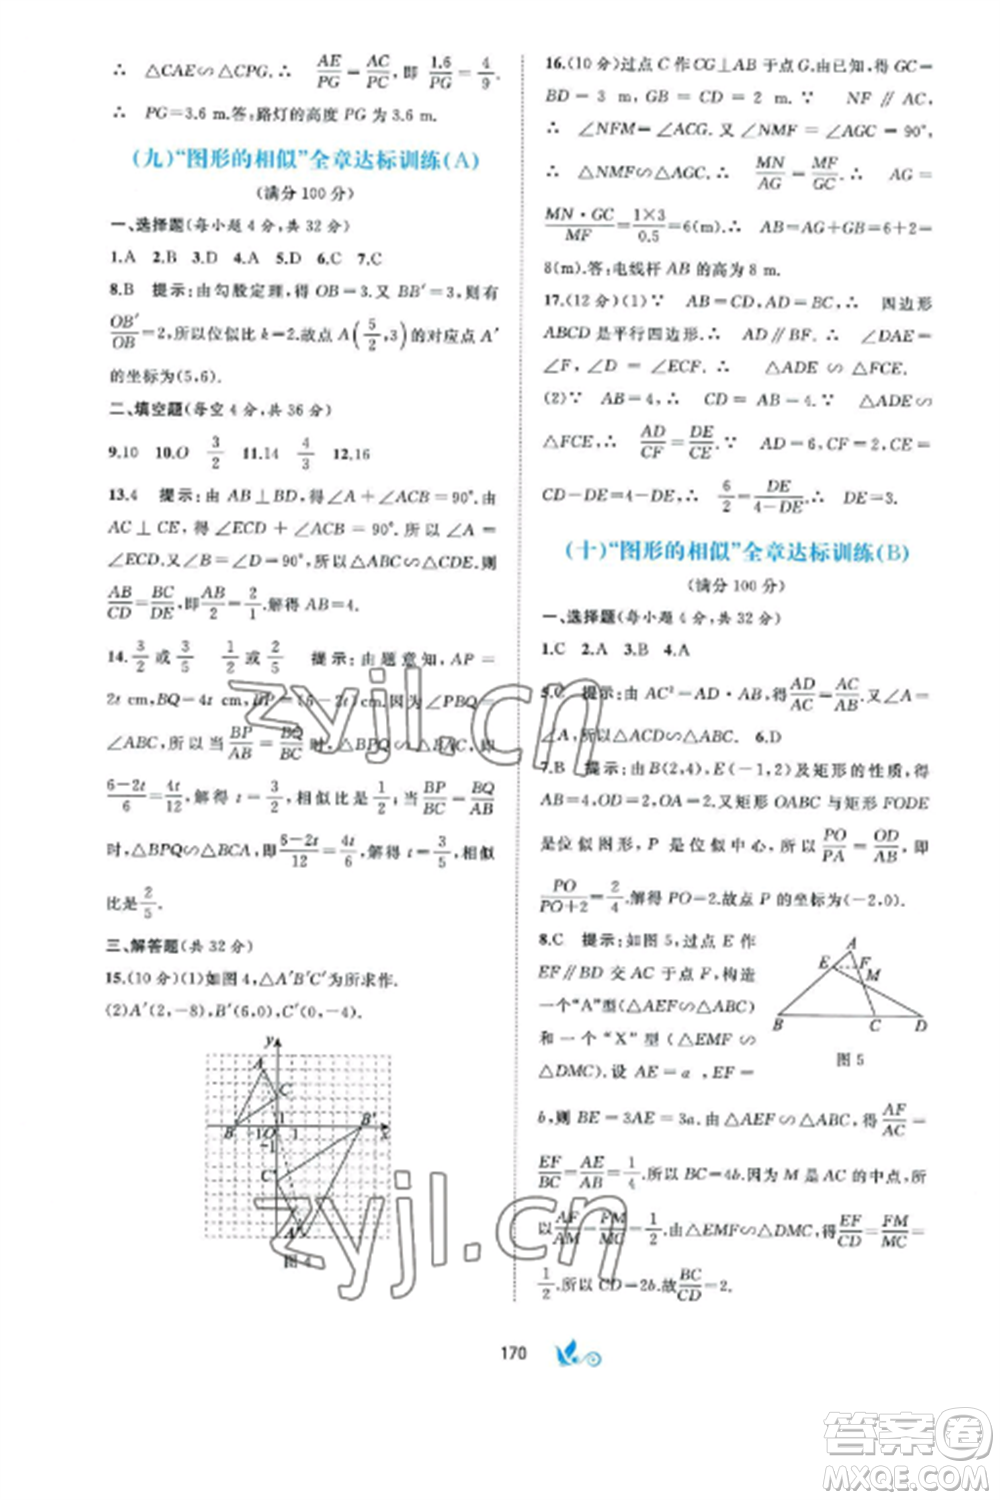 ∴ △CAE∽△CPG.∴ AE/PG=AC/PC,即 1.6/PG=4/9.
∴ PG=3.6 m.答:路灯的高度为 3.6 m.
(九)“图形的相似”全章达标训练(A)
(满分 100 分)
一、选择题(每小题 4 分,共 32 分)
1.A 2.B 3.D 4.A 5.D 6.C 7.C
8.B 提示:由勾股定理,得 OB=3.又 BB′=3,所以有
OB′/OB=2,所以位似比 k=2.故点 A(5/2,3)的对应点 A′
的坐标为(5,6).
二、填空题(每空 4 分,共 36 分)
9.10 10.O 3/2 11.14 4/3 12.16
13.4 提示:由 AB⊥BD,得∠A+∠ACB=90°.由
AC⊥CE,得∠ECD+∠ACB=90°.所以∠A=
∠ECD.所以△ABC∽△CDE.所以
AB/CD=BC/DE,即AB/2=2/1.解得 AB=4.
14.3/2或3/5 1/2或2/5 提示:由题意知,AP=
2t cm,BQ=4t cm,BP=(6-2t)cm.因为∠PBQ=
∠ABC,所以当BP/AB=BQ/BC时,△BPQ∽△BAC,即
6-2t/6=4t/12.解得 t=3/2,相似比是1/2;当BP/BC=BQ/AB
时,△BPQ∽△BCA,即6-2t/12=4t/6.解得 t=3/5,相似
比是2/5.
三、解答题(共 32 分)
15.(10 分)(1)如图 4,△A′B′C′为所求作.
(2)A′(2,-8),B′(6,0),C′(0,-4).
y
A
C
B -1 O 1 B′ x
-1
C′
A′
图 4
16.(10 分)过点 C 作 CG⊥AB 于点 G,由已知,得 GC=
BD=3 m,GB=CD=2 m.∵ NF∥AC,
∴ ∠NFM=∠ACG.又∠NMF=∠AGC=90°,
∴ △NMF∽△AGC.∴ MN/AG=MF/GC.∴ AG=
MN·GC/MF=1×3/0.5=6(m).∴ AB=AG+GB=6+2=
8(m).答:电线杆 AB 的高为 8 m.
17.(12 分)(1)∵ AB=CD,AD=BC,∴ 四边形
ABCD 是平行四边形.∴ AD∥BF.∴ ∠DAE=
∠F,∠D=∠FCE.∴ △ADE∽△FCE.
(2)∵ AB=4,∴ CD=AB=4.∵ △ADE∽
△FCE,∴ AD/CF=DE/CE.∵ AD=6,CF=2,CE=
CD-DE=4-DE,∴ 6/2=DE/4-DE.∴ DE=3.
(十)“图形的相似”全章达标训练(B)
(满分 100 分)
一、选择题(每小题 4 分,共 32 分)
1.C 2.A 3.B 4.A
5.C 提示:由 AC²=AD·AB,得AD/AC=AC/AB.又∠A=
∠A,所以△ACD∽△ABC. 6.D
7.B 提示:由 B(2,4),E(-1,2)及矩形的性质,得
AB=4,OD=2,OA=2.又矩形 OABC 与矩形 FODE
是位似图形,P 是位似中心,所以PO/PA=OD/AB,即
PO/PO+2=2/4.解得 PO=2.故点 P 的坐标为(-2,0).
8.C 提示:如图 5,过点 E 作
EF∥BD 交 AC 于点 F,构造
一个“A”型(△AEF∽△ABC)
和一个“X”型(△EMF∽
△DMC).设 AE=a,EF=
A
E F
M
B C D
图 5
b,则 BE=3AE=3a.由△AEF∽△ABC,得AF/AC=
EF/BC=AE/AB=1/4.所以 BC=4b.因为 M 是 AC 的中点,所
以AF/AM=FM/MC=1/2.由△EMF∽△DMC,得EF/CD=FM/MC=
1/2.所以 CD=2b.故BC/CD=2.
170
zyjl.cn
zyjl.cn
答案圈
MXQE.COM